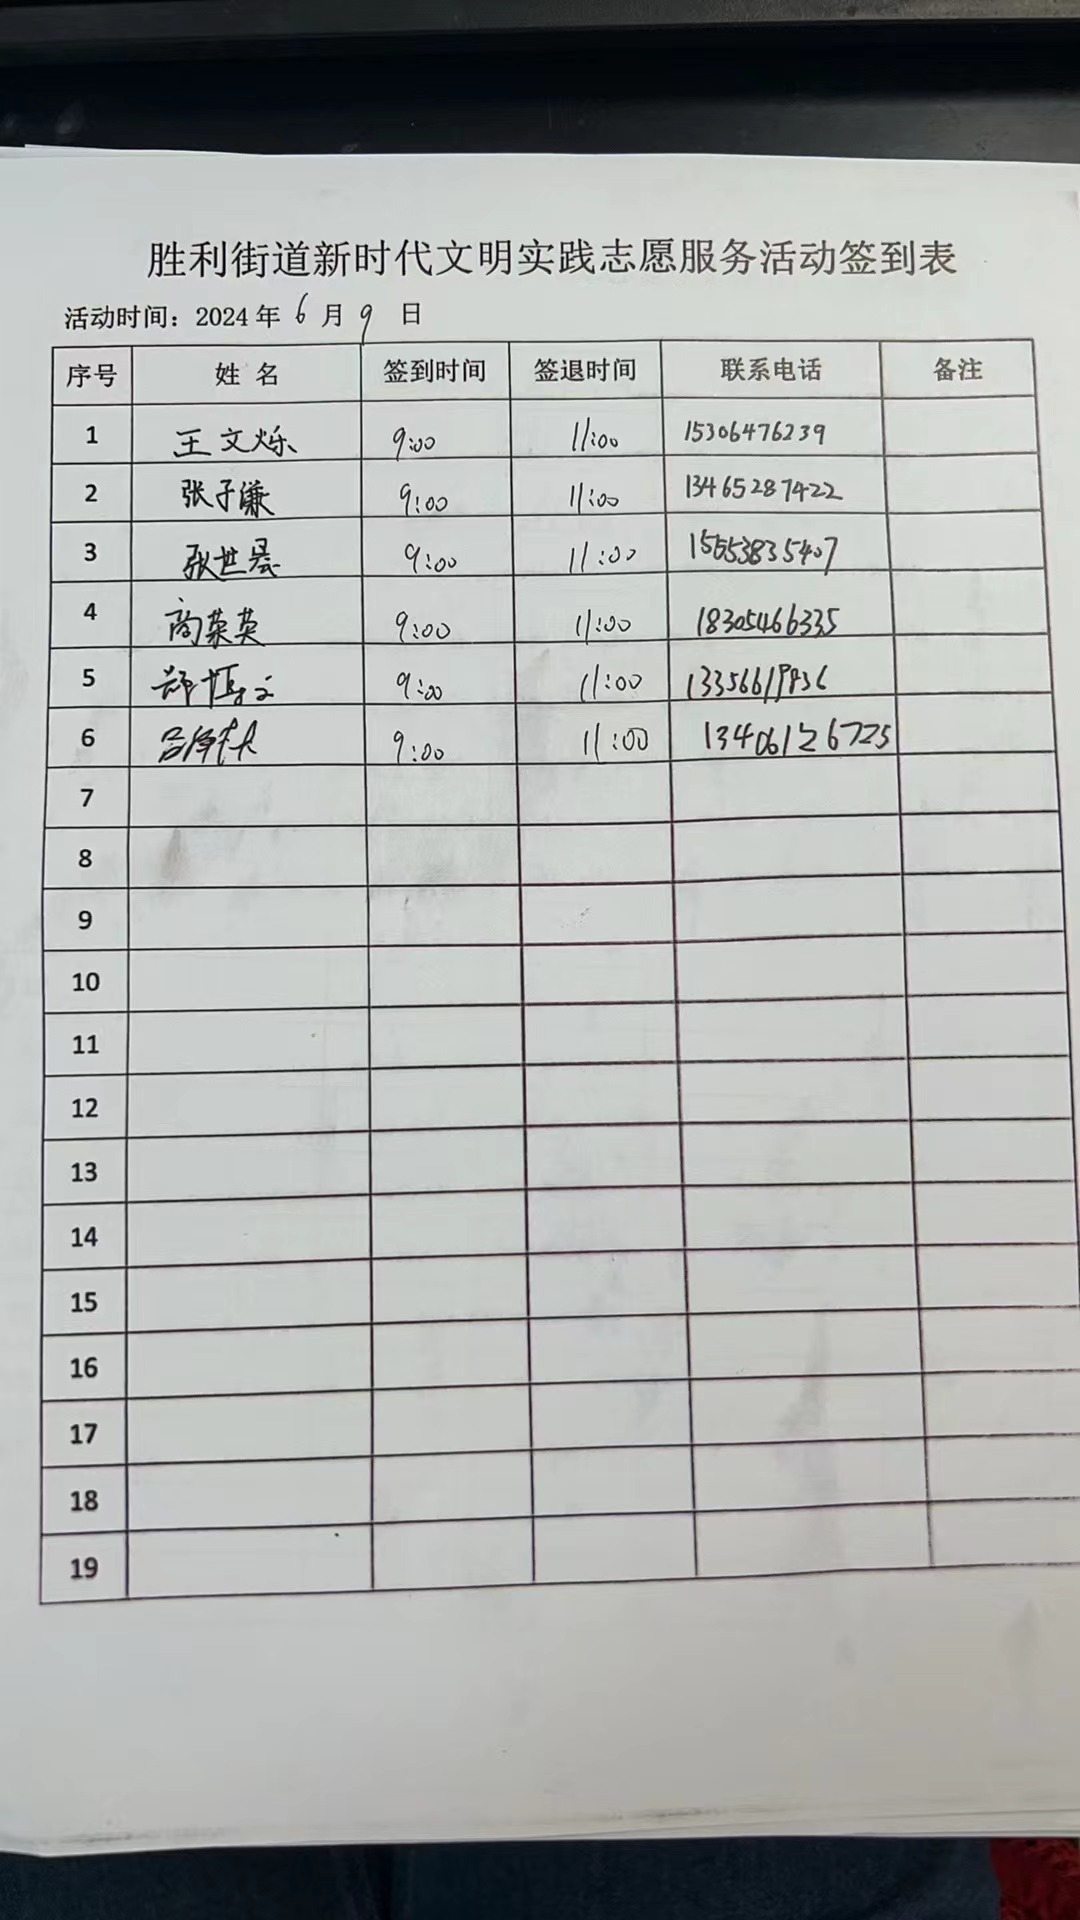 胜利街道新时代文明实践志愿服务活动签到表
活动时间：2024年 6 月 9 日
序号 姓 名 签到时间 签退时间 联系电话 备注
1 王文烁 9:00 11:00 15306476239
2 张子谦 9:00 11:00 13465287422
3 张世晨 9:00 11:00 15553835407
4 商荣英 9:00 11:00 18305466335
5 郑博文 9:00 11:00 13356619836
6 9:00 11:00 13406126725
7
8
9
10
11
12
13
14
15
16
17
18
19